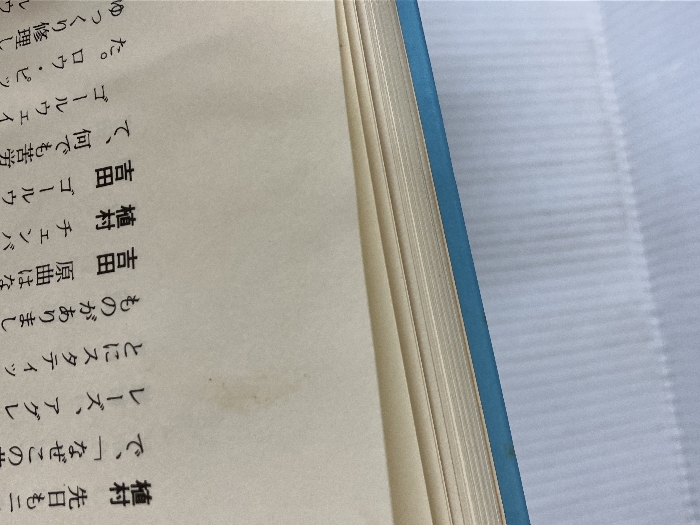 植村 先日も二
で、「なぜこの
レーズ、アグレ
とにスタティッ
ものがありまし
吉田 原曲はな
植村 チェンバ
吉田 ゴールウ
て、何でも苦労
ゴールウェイ
た。ロウ・ピッ
ゆっくり修理し